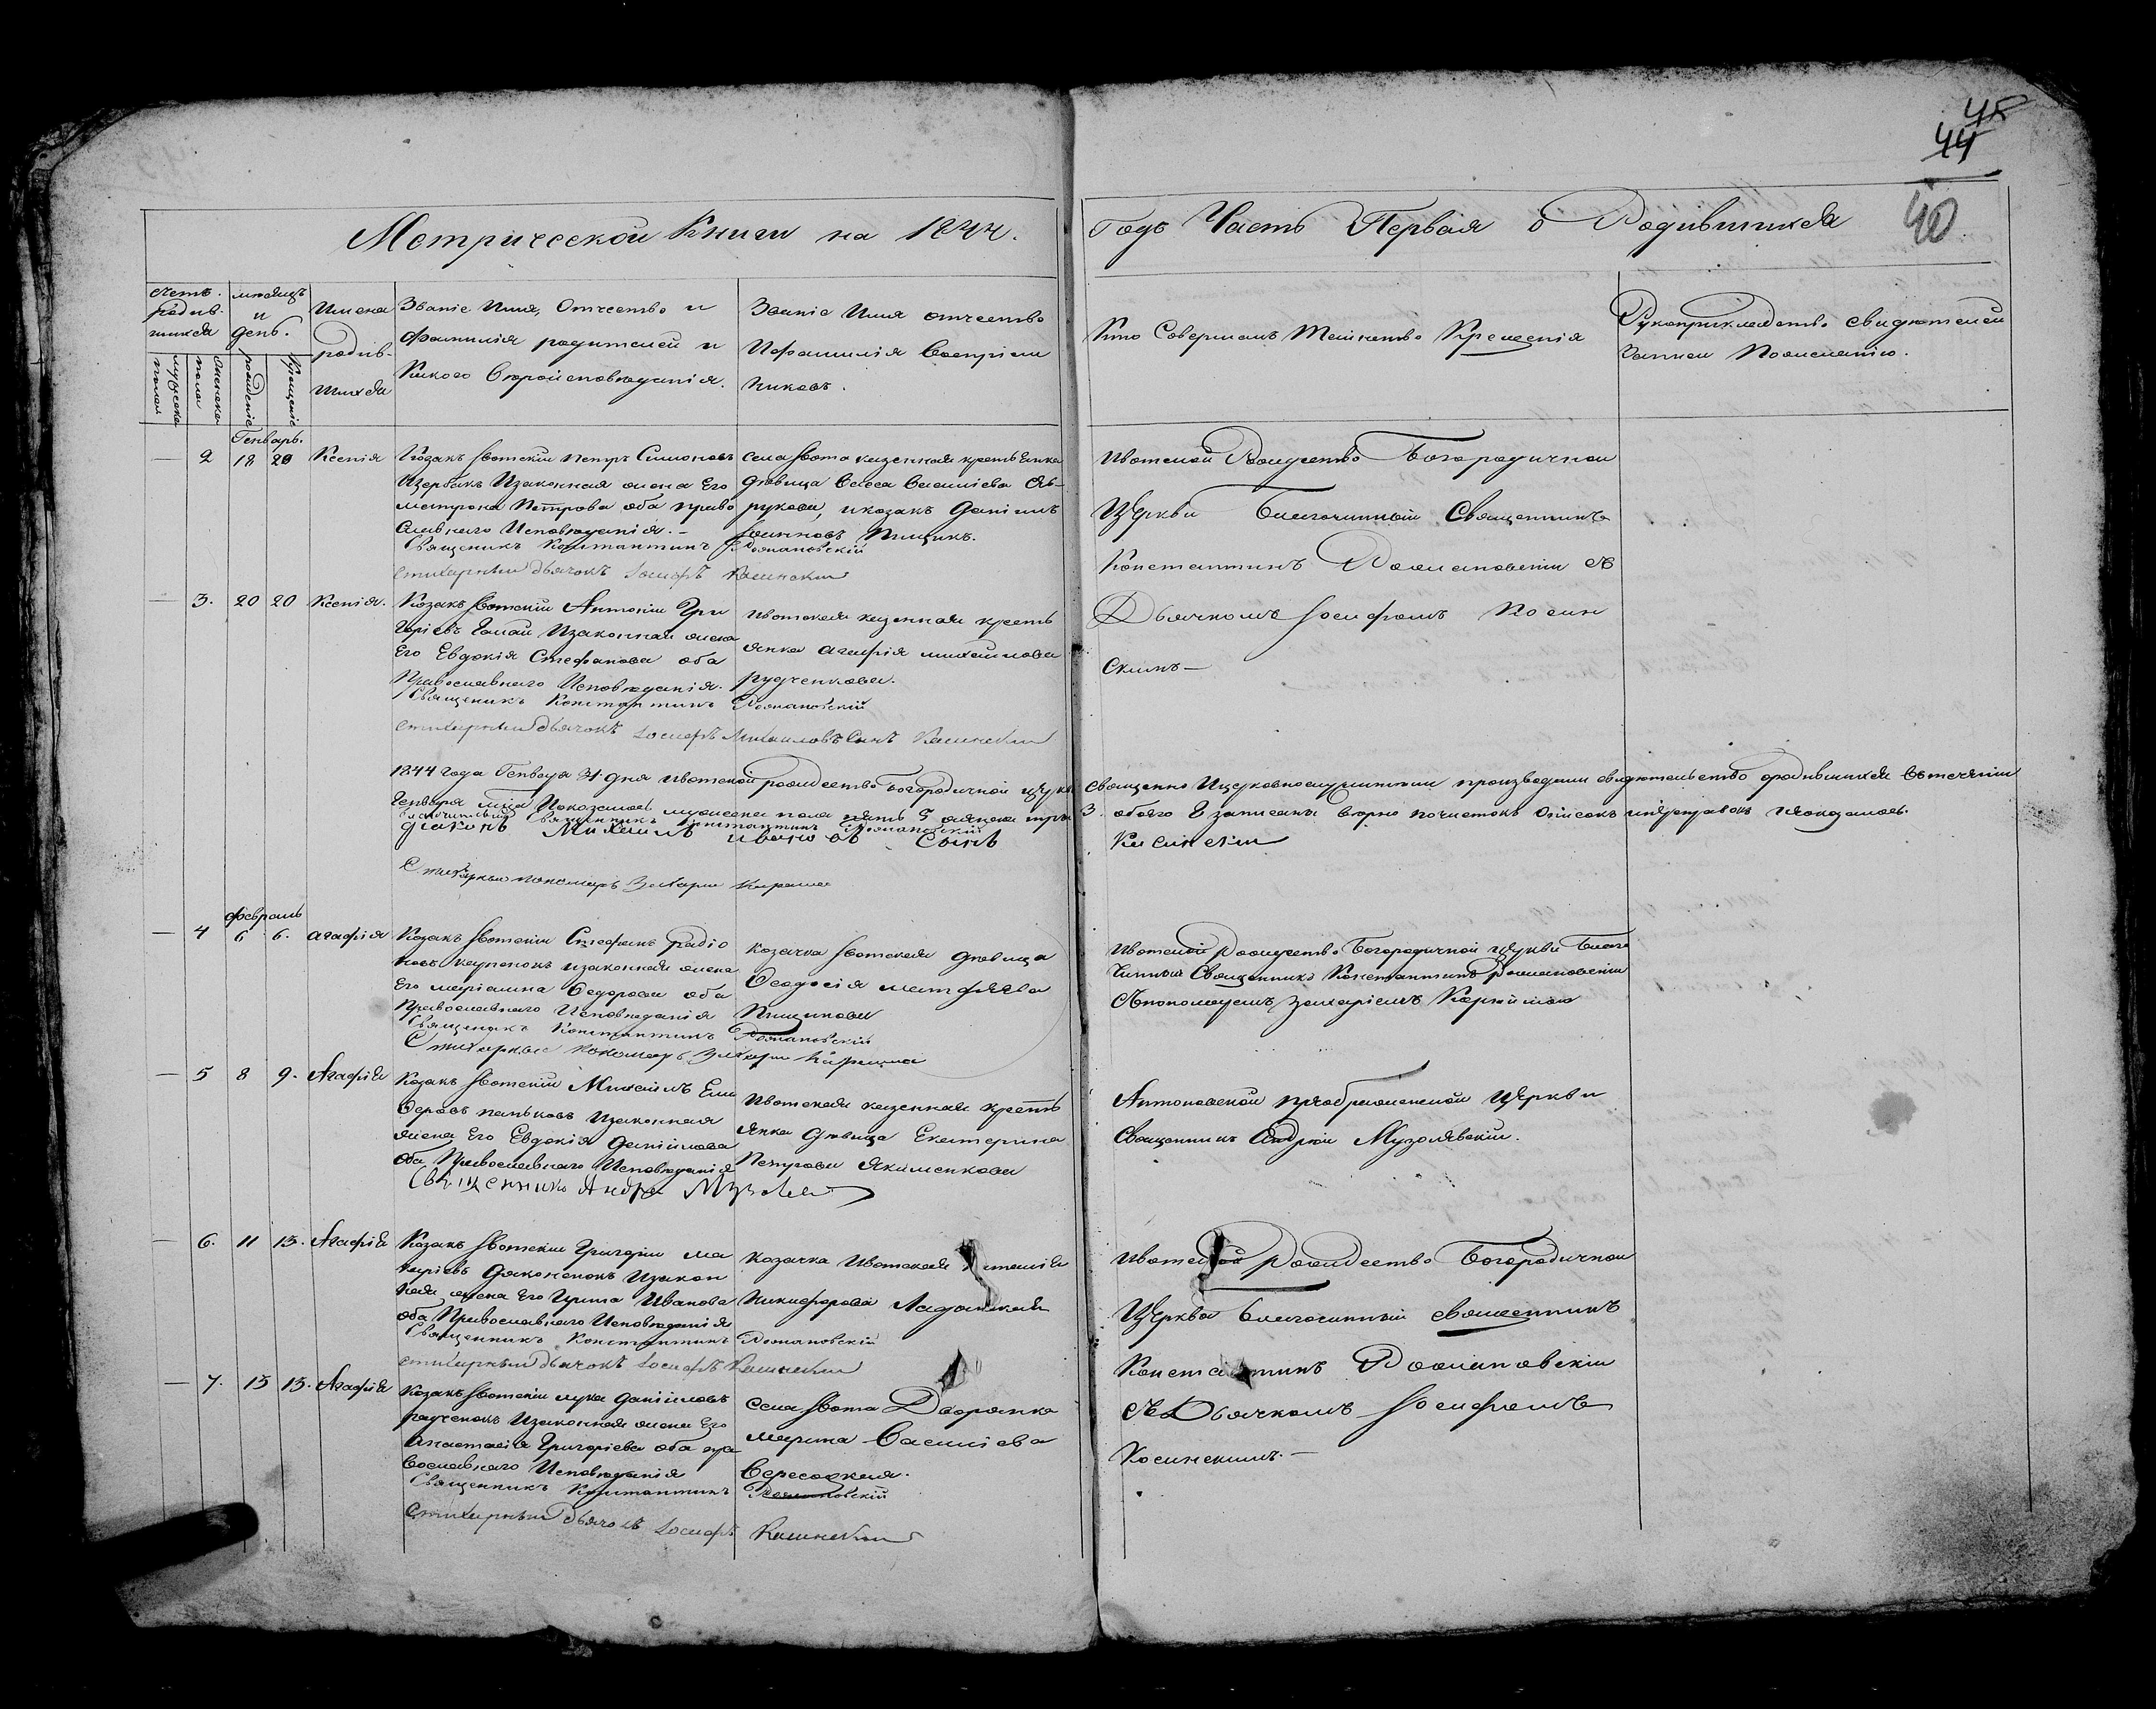 45
44
40
Метрической Книги на 1844.
Годъ Часть Первая о Родившихся
счетъ родив-шихся
мужеска полая
женска пола
месяцъ и день.
рождение
крещение
Имена родив-шихся
Званіе Имя, Отчество и
фамилія родителей и
Какого Вероисповеданія.
Званіе Имя отчество
Ифамилія Воспріем
никовъ.
Кто Совершалъ Таинство Крещенія
Рукоприкладство свидетелей
записи Пожеланію.
Генварь.
2 18 20 Ксенія
Козакъ Ивотскій петръ Симоновъ
Щербакъ Изаконная жена Его
матрона Петрова оба право
славнаго Исповеданія.-
Священикъ Константинъ Романовскій
стихарный дьячокъ Іосифъ Косинскій
села Ивота казенная крестьянка
девица Васса Василіева
рукова, икозакъ Даніилъ
Іоанновъ Пищикъ.
Ивотской Рождество Богородичной
Церкви Благочинный Священникъ
Константинъ Романовскій съ
Дьячкомъ Іосифомъ Косин
скимъ-
3. 20 20 Ксенія.
Козакъ Ивотскій Антоній Гри
горіевъ Изаконная жена
Его Евдокія Стефанова оба
Православнаго Исповеданія.
Священикъ Константинъ Романовскій
стихарный дьячокъ Іосифъ Михаиловъ Сынъ Косинский
ивотская казенная кресть
янка агафія михаилова
рудченкова.
1844 года Генваря 31 дня ивотской рождество Богородичной церкви
священно Ицерковнослужители произведши свидетельство ородившихся втечении
Генваря Показалось мужеска пола пять 5 женска три
3. обоего 8 записаны верно почистокъ Описокъ инеоказалось.
благочинный Священникъ Константинъ Романовскій
діаконъ Михаилъ Ивановъ Сынъ
Косинский
Стихарный пономарь Захарій
февраль
4 6 6. агафія
Козакъ Ивотскій Стефанъ Радіо
новъ изаконная жена
Его маріамна Федорова оба
Православнаго Исповеданія
Священикъ Константинъ Романовскій
Стихарный пономарь Захарій
козачка Ивотская девица
Феодосія матфеева
Пищикова
Ивотской рождество Богородичной Церкви Благо
чинный Священникъ Константинъ Романовскій
Спономаремъ захаріемъ
5 8 9. Агафія
Козакъ Ивотскій Михаилъ Ели
феровъ паньковъ Изаконная
жена Его Евдокія Даніилова
оба Православнаго Исповеданія
Священникъ Андрей
Ивотская казенная кресть
янка девица Екатерина
Петрова Якименкова
Антоновской преображенской Церкви
Священникъ Андрей Музолевскій.
6. 11 13. Агафія
Козакъ Ивотскій Григорій ма
каріевъ Дяконенокъ Изакон
ная жена Его Ирина Иванова
оба Православнаго Исповеданія
Священникъ Константинъ Романовскій
стихарный дьячокъ Іосифъ Косинский
Козачка Ивотская
Никифорова
Ивотской Рождество Богородичной
Церкви благочинный священникъ
Константинъ Романовскій
съ Дьячкомъ Іосифомъ
Косинскимъ.-
7. 13 13. Агафія
Козакъ Ивотскій лука Даніиловъ
рудченокъ Изаконная жена Его
анастасія Григоріева оба пра
вославнаго Исповеданія
Священникъ Константинъ Романовскій
стихарный дьячокъ Іосифъ Косинский
села Ивота Дворянка
марина Василіева
Вересоцкая.